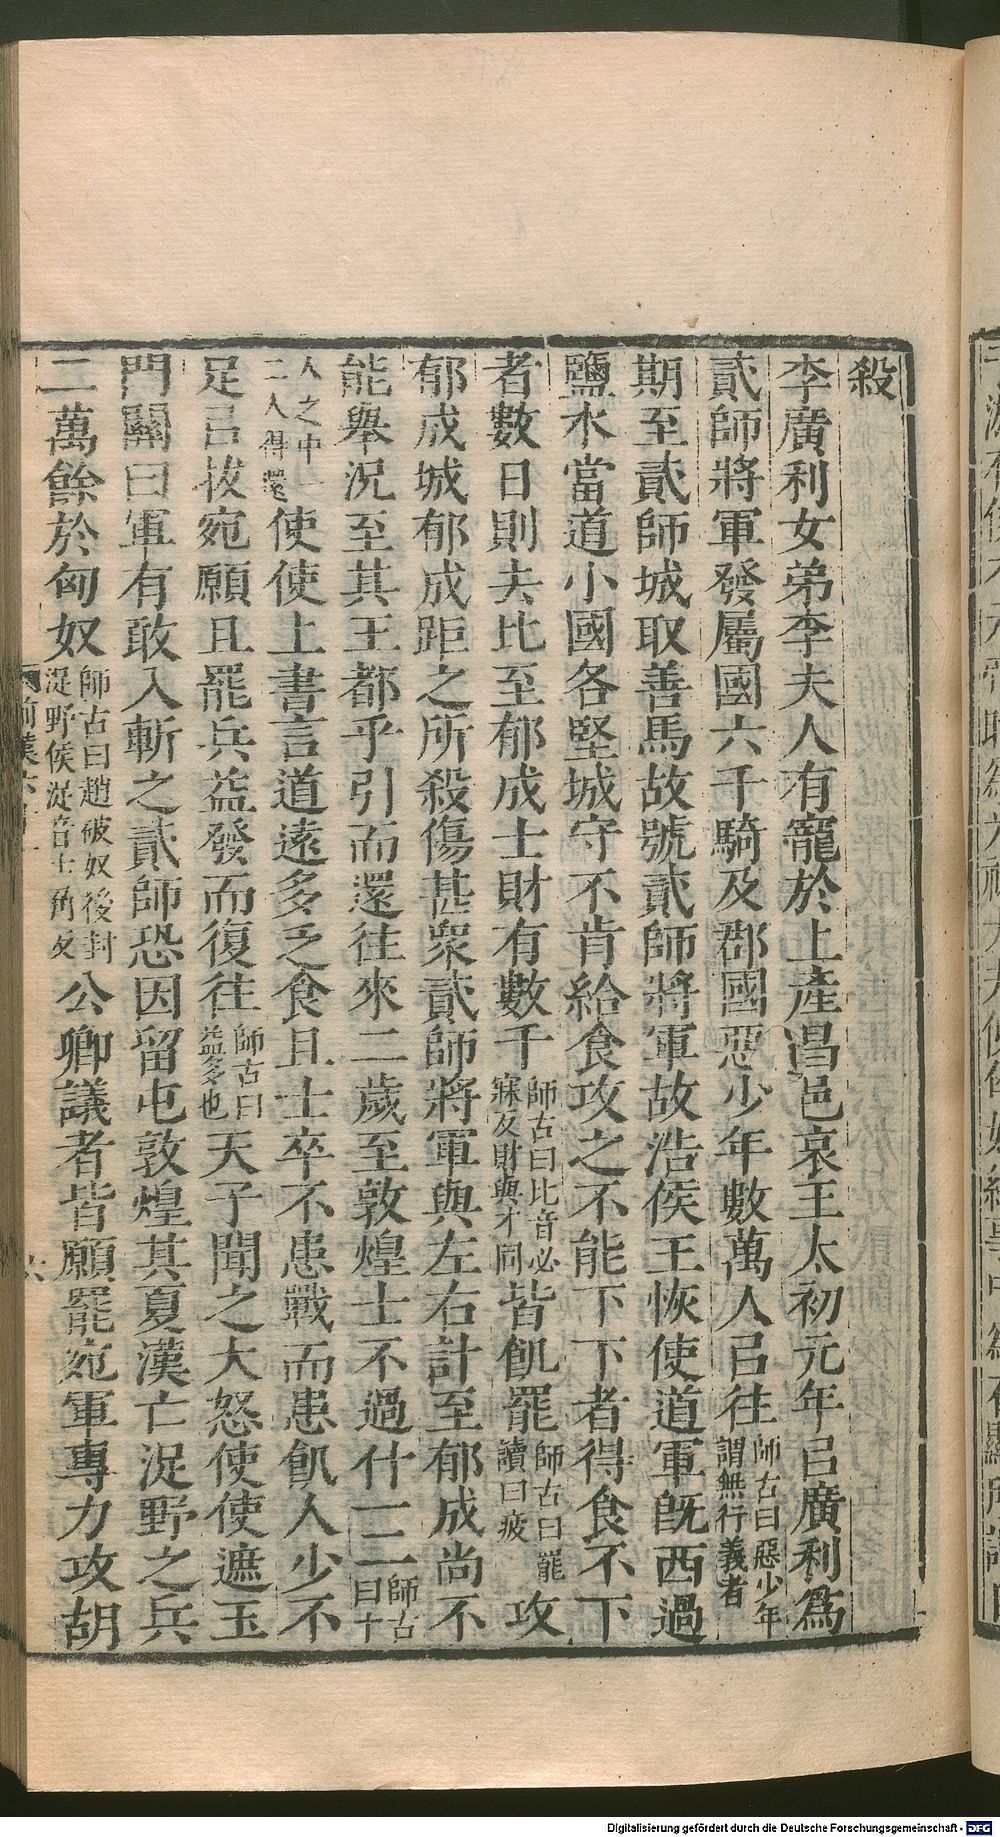 殺
李廣利女弟李夫人有寵於上產昌邑哀王太初元年㠯廣利爲
貳師將軍發屬國六千騎及郡國惡少年數萬人㠯往師古曰惡少年謂無行義者
期至貳師城取善馬故號貳師將軍故浩侯王恢使道軍旣西過
鹽水當道小國各堅城守不肯給食攻之不能下下者得食不下
者數日則去比至郁成士財有數千師古曰比音必寐反財與才同皆飢罷師古曰罷讀曰疲攻
郁成城郁成距之所殺傷甚衆貳師將軍與左右計至郁成尚不
能舉況至其王都乎引而還往來二歲至敦煌士不過什一二師古曰十
人之中一二人得還使使上書言道遠多乏食且士卒不患戰而患飢人少不
足㠯拔宛願且罷兵益發而復往師古曰益多也天子聞之大怒使使遮玉
門關曰軍有敢入斬之貳師恐因留屯敦煌其夏漢亡浞野之兵
二萬餘於匈奴師古曰趙破奴後封浞野侯浞音士角反公卿議者皆願罷宛軍專力攻胡
Digitalisierung gefördert durch die Deutsche Forschungsgemeinschaft - DFG